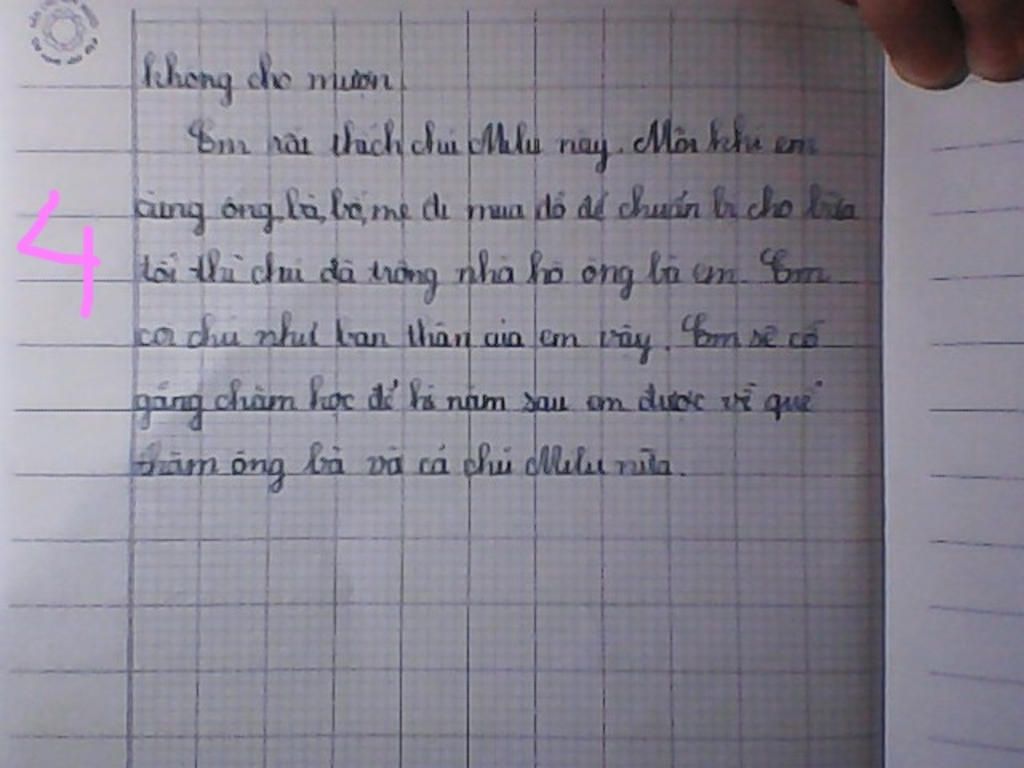 không cho mượn.
Em rất thích chú Milu này. Mỗi khi em
cùng ông, bà, bố, mẹ đi mua đồ để chuẩn bị cho bữa
tối thì chú đã trông nhà hộ ông bà em. Em
coi chú như bạn thân của em vậy. Em sẽ cố
gắng chăm học để hè năm sau em được về quê
thăm ông bà và cả chú Milu nữa.
4